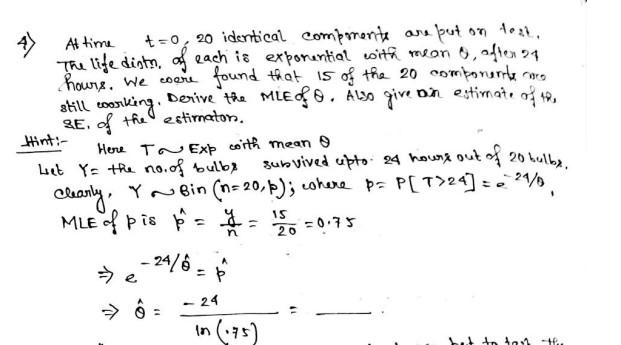 4) At time t=0, 20 identical components are put on test.
The life distn. of each is exponential with mean θ, after 24
hours. We were found that 15 of the 20 components were
still working. Derive the MLE of θ. Also give an estimate of the
SE. of the estimator.
Hint:- Here T ~ Exp with mean θ
Let Y = the no. of bulbs survived upto 24 hours out of 20 bulbs.
Clearly, Y ~ Bin (n=20, p); where p = P[T>24] = e^{-24/θ},
MLE of p is p̂ = y/n = 15/20 = 0.75
⇒ e^{-24/θ̂} = p̂
⇒ θ̂ = -24/ln(.75) = ___.